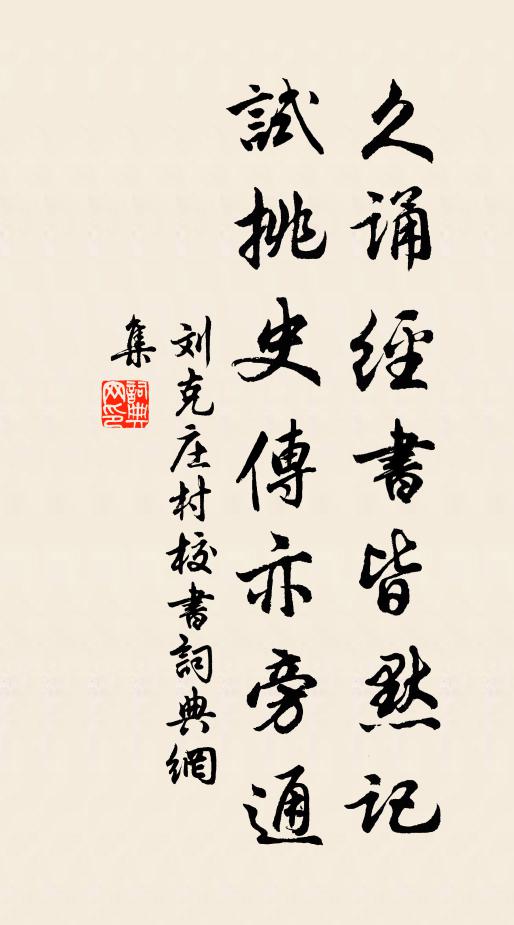 久诵經書皆默记
試挑史傳亦旁通
刘克庄村校書詞典網
集
詞典网印